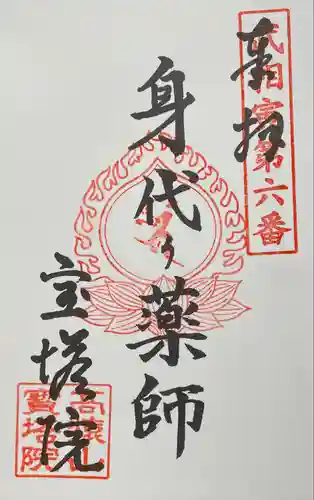 奉拝
武相寅第六番
身代り薬師
宝塔院
高讃山
寳塔院